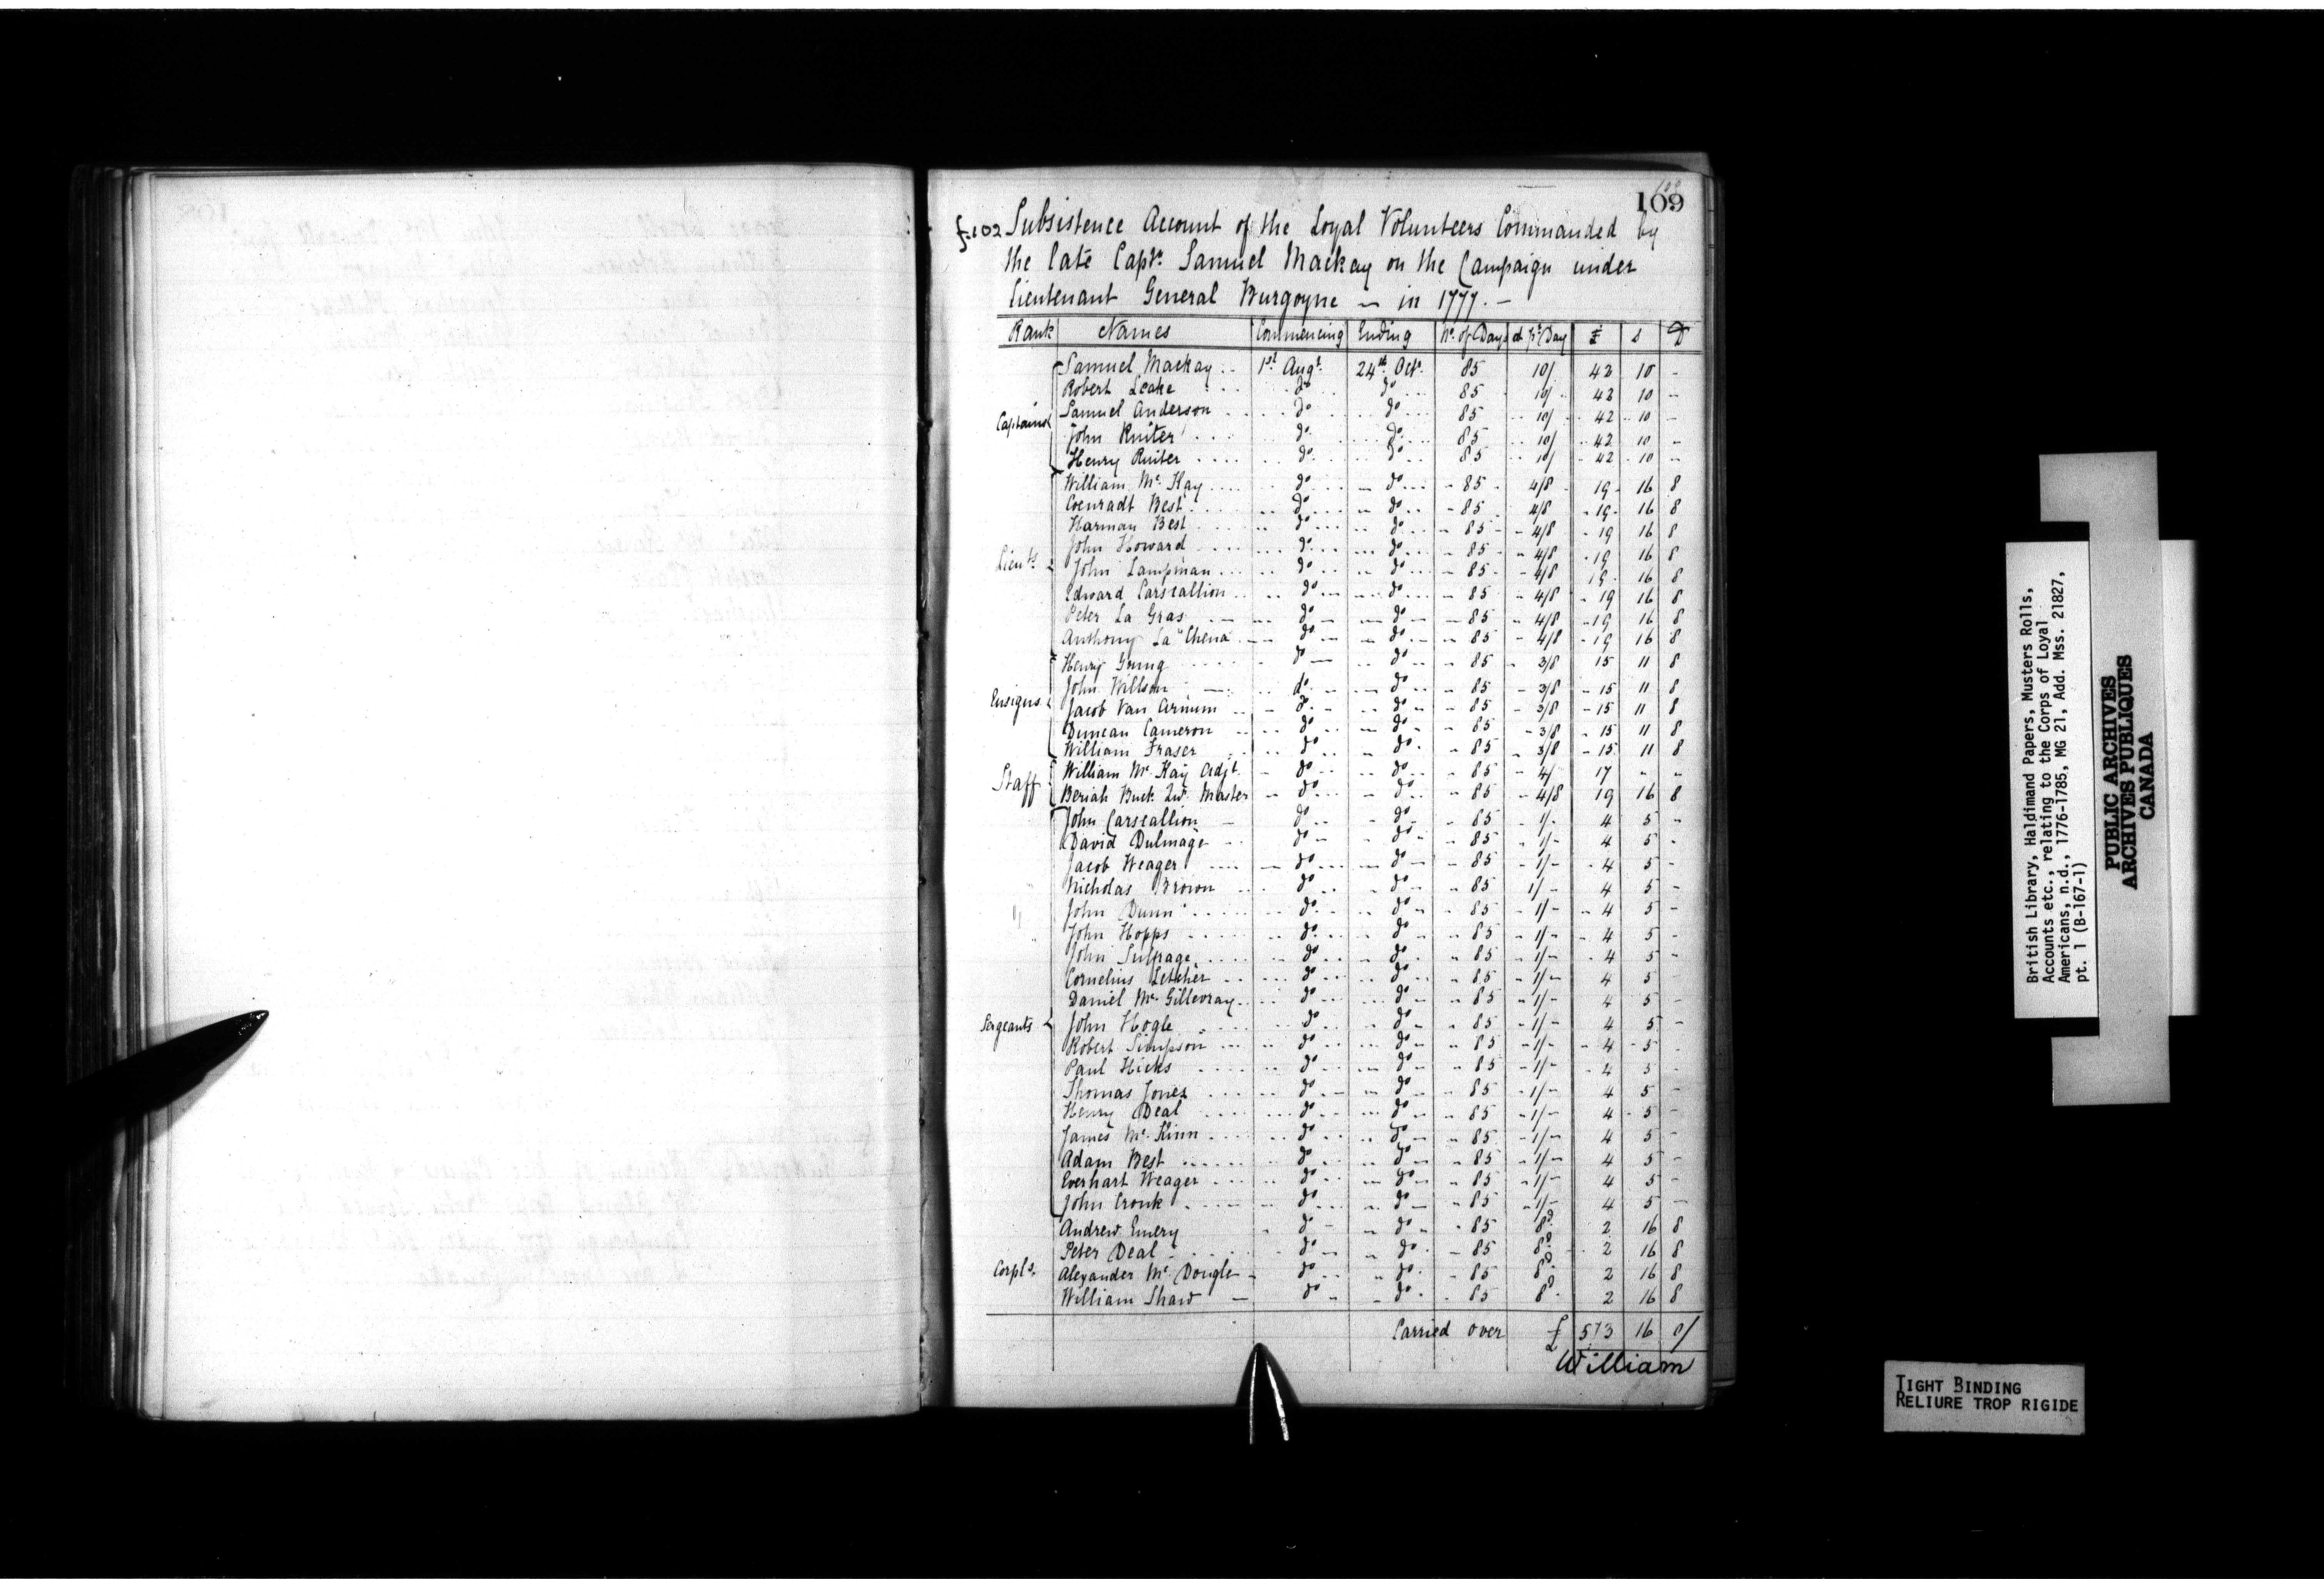 109
f.102 Subsistence Account of the Loyal Volunteers Commanded by
the late Capt. Samuel Mackay on the Campaign under
Lieutenant General Burgoyne — in 1777. —
Rank Names Commencing Ending No. of Days at pr Day £ s D
Samuel Mackay 1st Augt. 24th Octr. 85 10/ 42 10 -
Robert Leake do do 85 10/ 42 10 -
Captains Samuel Anderson do do 85 10/ 42 10 -
John Ruiter do do 85 10/ 42 10 -
Henry Ruiter do do 85 10/ 42 10 -
William Mc. Kay do do 85 4/8 19 16 8
Coenradt Best do do 85 4/8 19 16 8
Harman Best do do 85 4/8 19 16 8
John Howard do do 85 4/8 19 16 8
Lieuts. John Lampman do do 85 4/8 19 16 8
Edward Carscallion do do 85 4/8 19 16 8
Peter La Gras do do 85 4/8 19 16 8
Anthony La Chena do do 85 4/8 19 16 8
Henry Young do do 85 3/8 15 11 8
John Willson do do 85 3/8 15 11 8
Ensigns Jacob Van Arnum do do 85 3/8 15 11 8
Duncan Cameron do do 85 3/8 15 11 8
William Fraser do do 85 3/8 15 11 8
Staff William Mc. Kay Adjt. do do 85 4/ 17 - -
Beriah Buck Qur. Master do do 85 4/8 19 16 8
John Carscallion do do 85 1/- 4 5 -
David Dulmage do do 85 1/- 4 5 -
Jacob Weager do do 85 1/- 4 5 -
Nicholas Brown do do 85 1/- 4 5 -
John Dunn do do 85 1/- 4 5 -
John Hopps do do 85 1/- 4 5 -
John Sulpage do do 85 1/- 4 5 -
Cornelius Letcher do do 85 1/- 4 5 -
Daniel Mc. Gillevray do do 85 1/- 4 5 -
Sergeants John Hogle do do 85 1/- 4 5 -
Robert Simpson do do 85 1/- 4 5 -
Paul Hicks do do 85 1/- 4 5 -
Thomas Jones do do 85 1/- 4 5 -
Henry Deal do do 85 1/- 4 5 -
James Mc. Kinn do do 85 1/- 4 5 -
Adam Best do do 85 1/- 4 5 -
Everhart Weager do do 85 1/- 4 5 -
John Cronk do do 85 1/- 4 5 -
Andrew Emery do do 85 8d 2 16 8
Peter Deal do do 85 8d 2 16 8
Corpls. Alexander Mc. Dougle do do 85 8d 2 16 8
William Shaw do do 85 8d 2 16 8
Carried over £ 573 16 0/
William
British Library, Haldimand Papers, Musters Rolls,
Accounts etc., relating to the Corps of Loyal
Americans, n.d., 1776-1785, MG 21, Add. Mss. 21827,
pt. 1 (B-167-1)
PUBLIC ARCHIVES
ARCHIVES PUBLIQUES
CANADA
TIGHT BINDING
RELIURE TROP RIGIDE